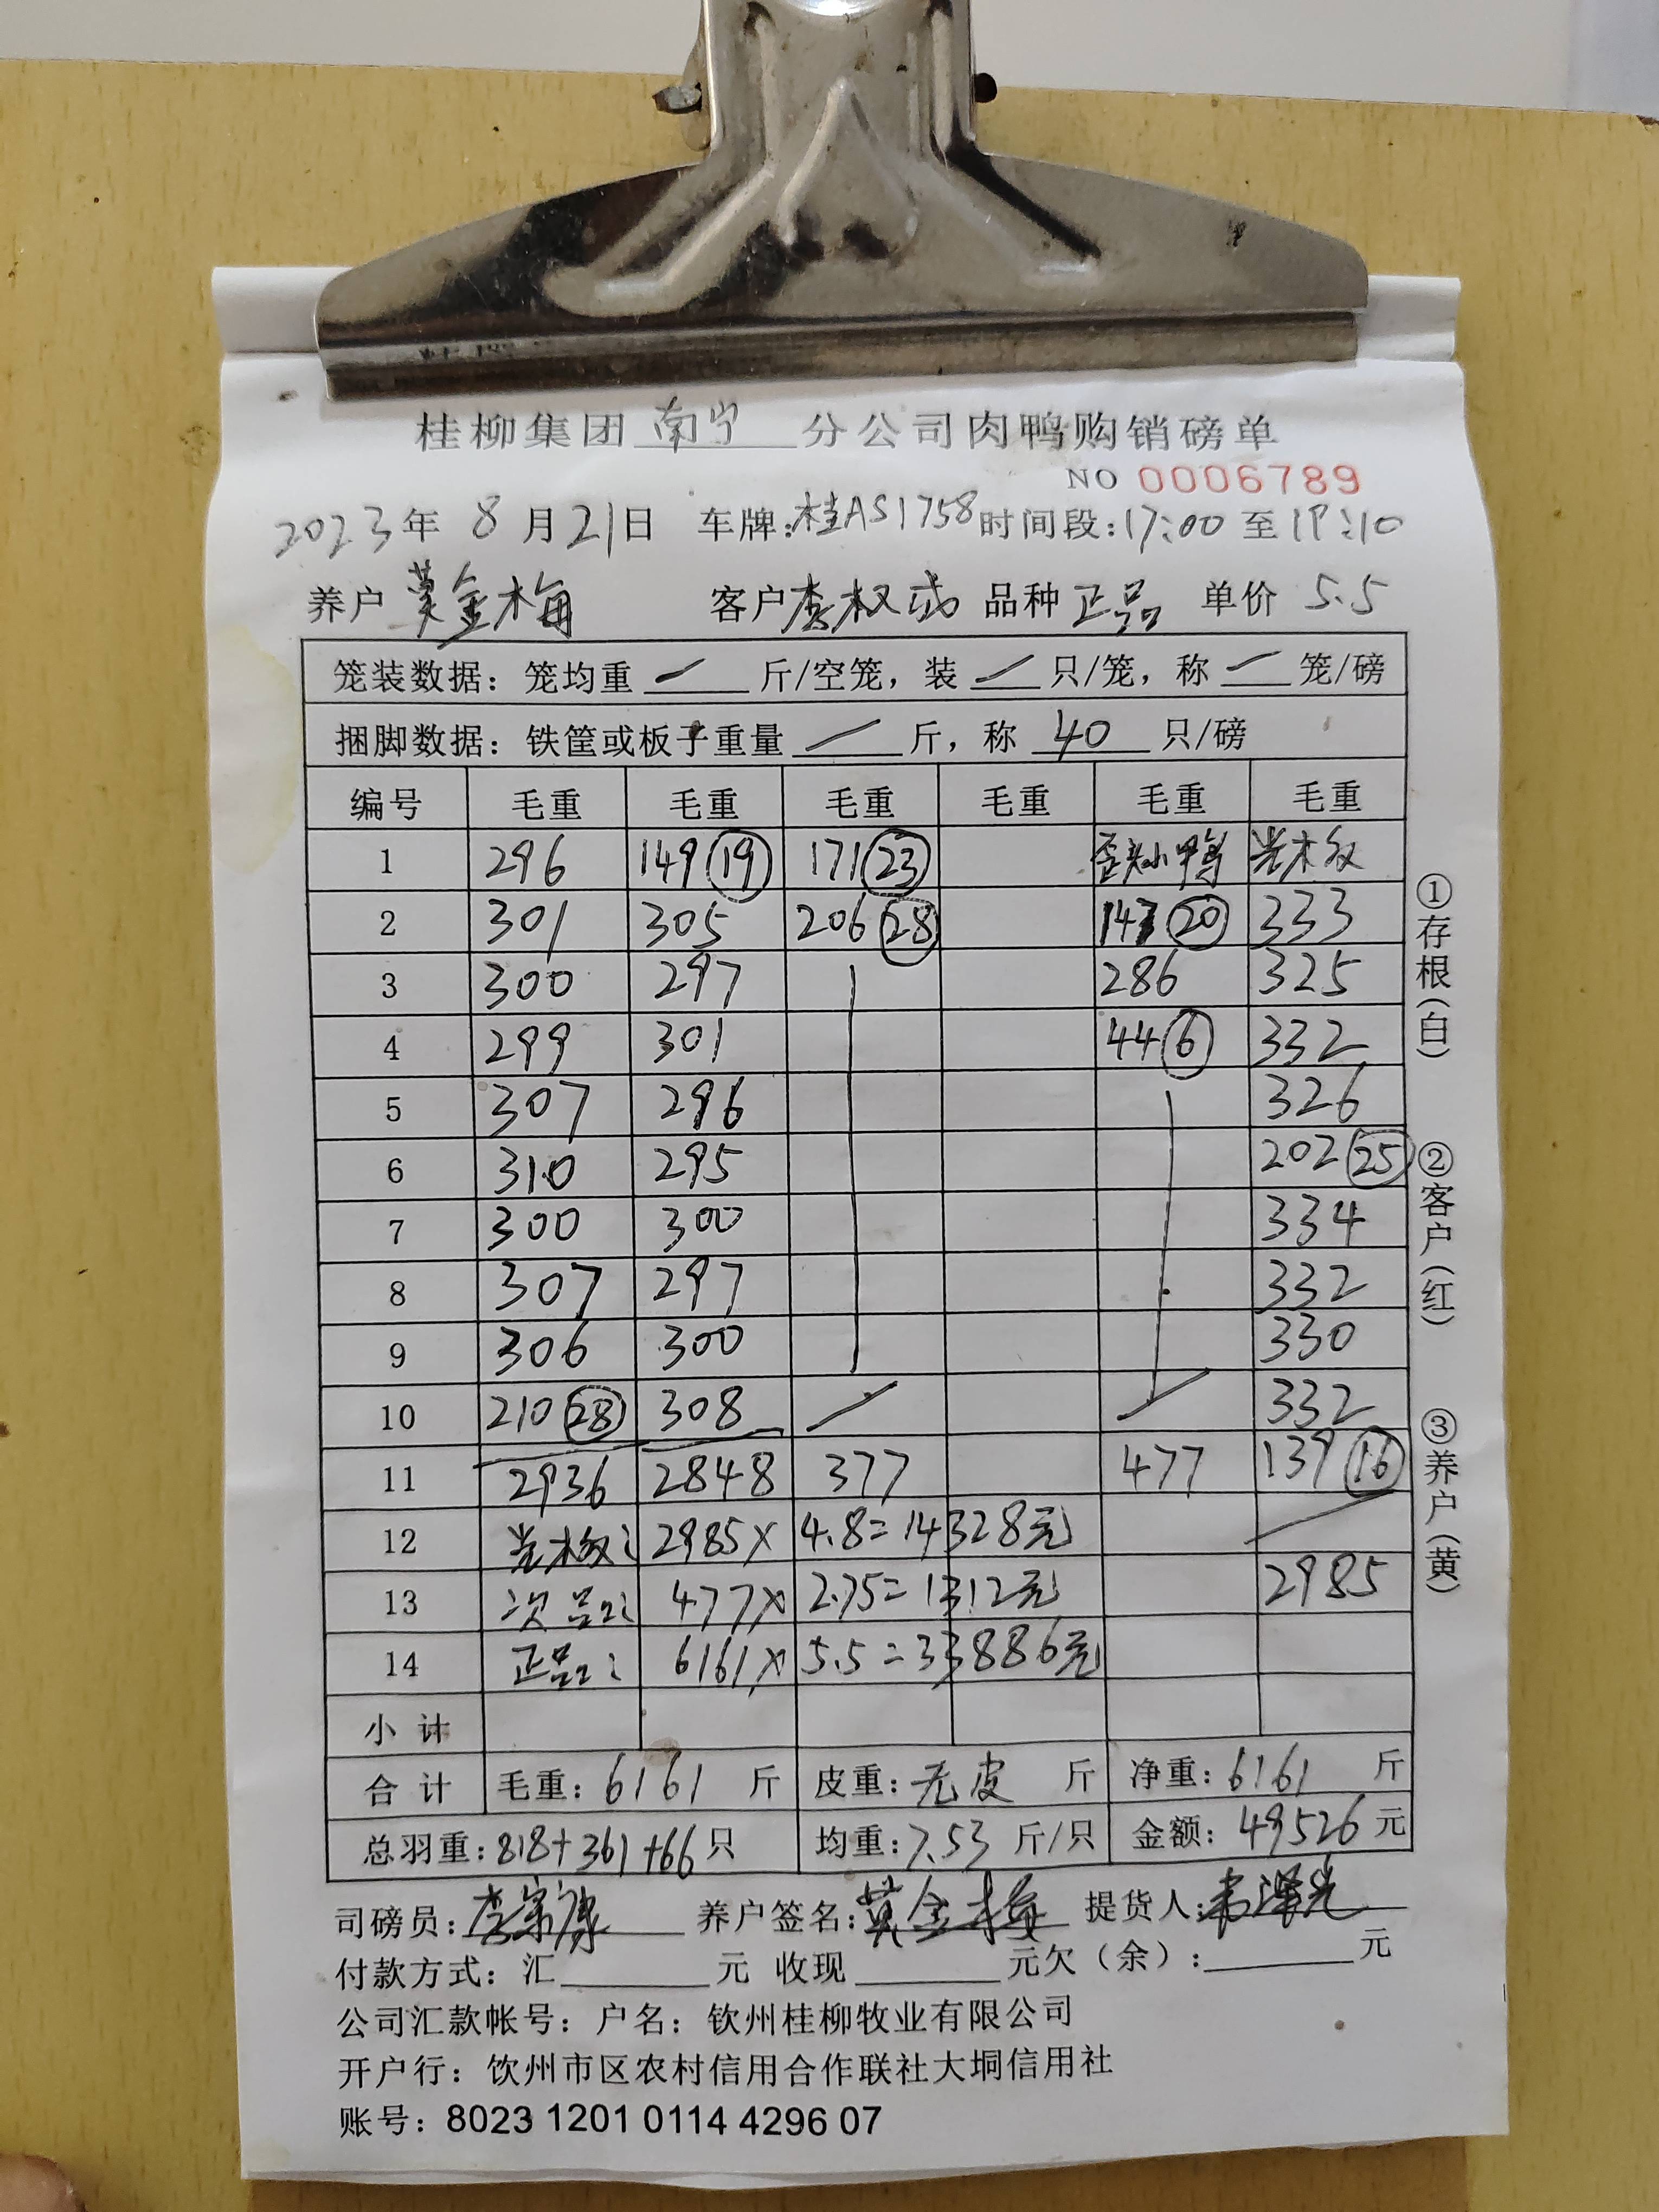 桂柳集团 南宁 分公司肉鸭购销磅单
NO 0006789
2023年 8 月21日 车牌:桂AS1758 时间段:17:00 至 19:10
养户 莫金梅 客户 李权 品种 正品 单价 5.5
笼装数据: 笼均重 / 斤/空笼, 装 / 只/笼, 称 / 笼/磅
捆脚数据: 铁筐或板子重量 / 斤, 称 40 只/磅
编号 毛重 毛重 毛重 毛重 毛重 毛重
1 296 149 (19) 171 (23) 歪头小鸭
2 301 305 206 (28) 147 (20) 333
3 300 297 286 325
4 299 301 44 (6) 332
5 307 296 326
6 310 295 202 (25)
7 300 300 334
8 307 297 332
9 306 300 330
10 210 (28) 308 332
11 2936 2848 377 477 139 (16)
12 2985× 4.8=14328元
13 次品: 477× 2.75=1312元 2985
14 正品: 6161× 5.5=33886元
小计
合计 毛重: 6161 斤 皮重: 无皮 斤 净重: 6161 斤
总羽重: 818+361+66 只 均重: 7.53 斤/只 金额: 49526 元
司磅员: 李宗康 养户签名: 莫金梅 提货人:
付款方式: 汇 元 收现 元欠(余): 元
公司汇款帐号: 户名: 钦州桂柳牧业有限公司
开户行: 饮州市区农村信用合作联社大垌信用社
账号: 8023 1201 0114 4296 07
①存根(白)
②客户(红)
③养户(黄)